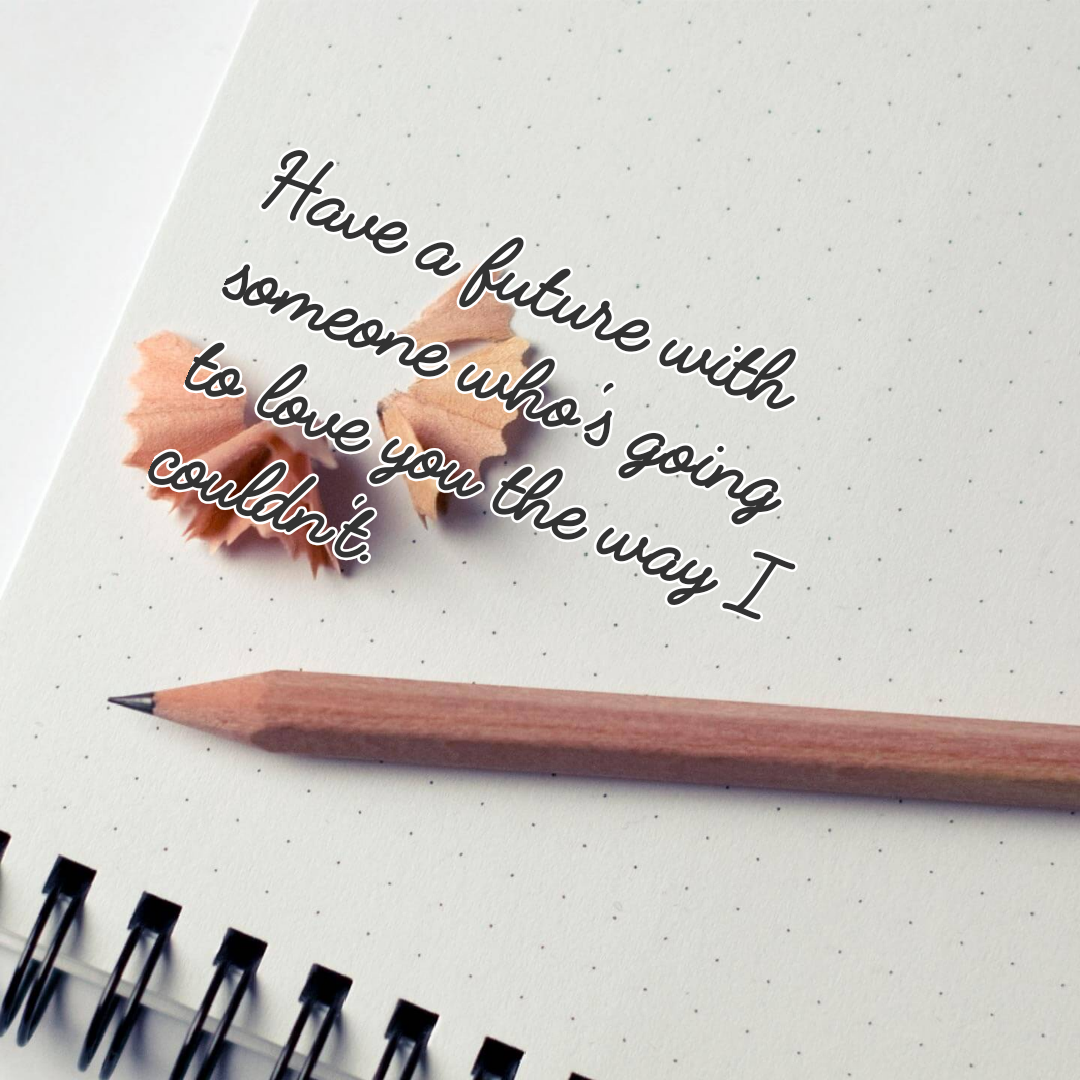 Have a future with
someone who's going
to love you the way I
couldn't.